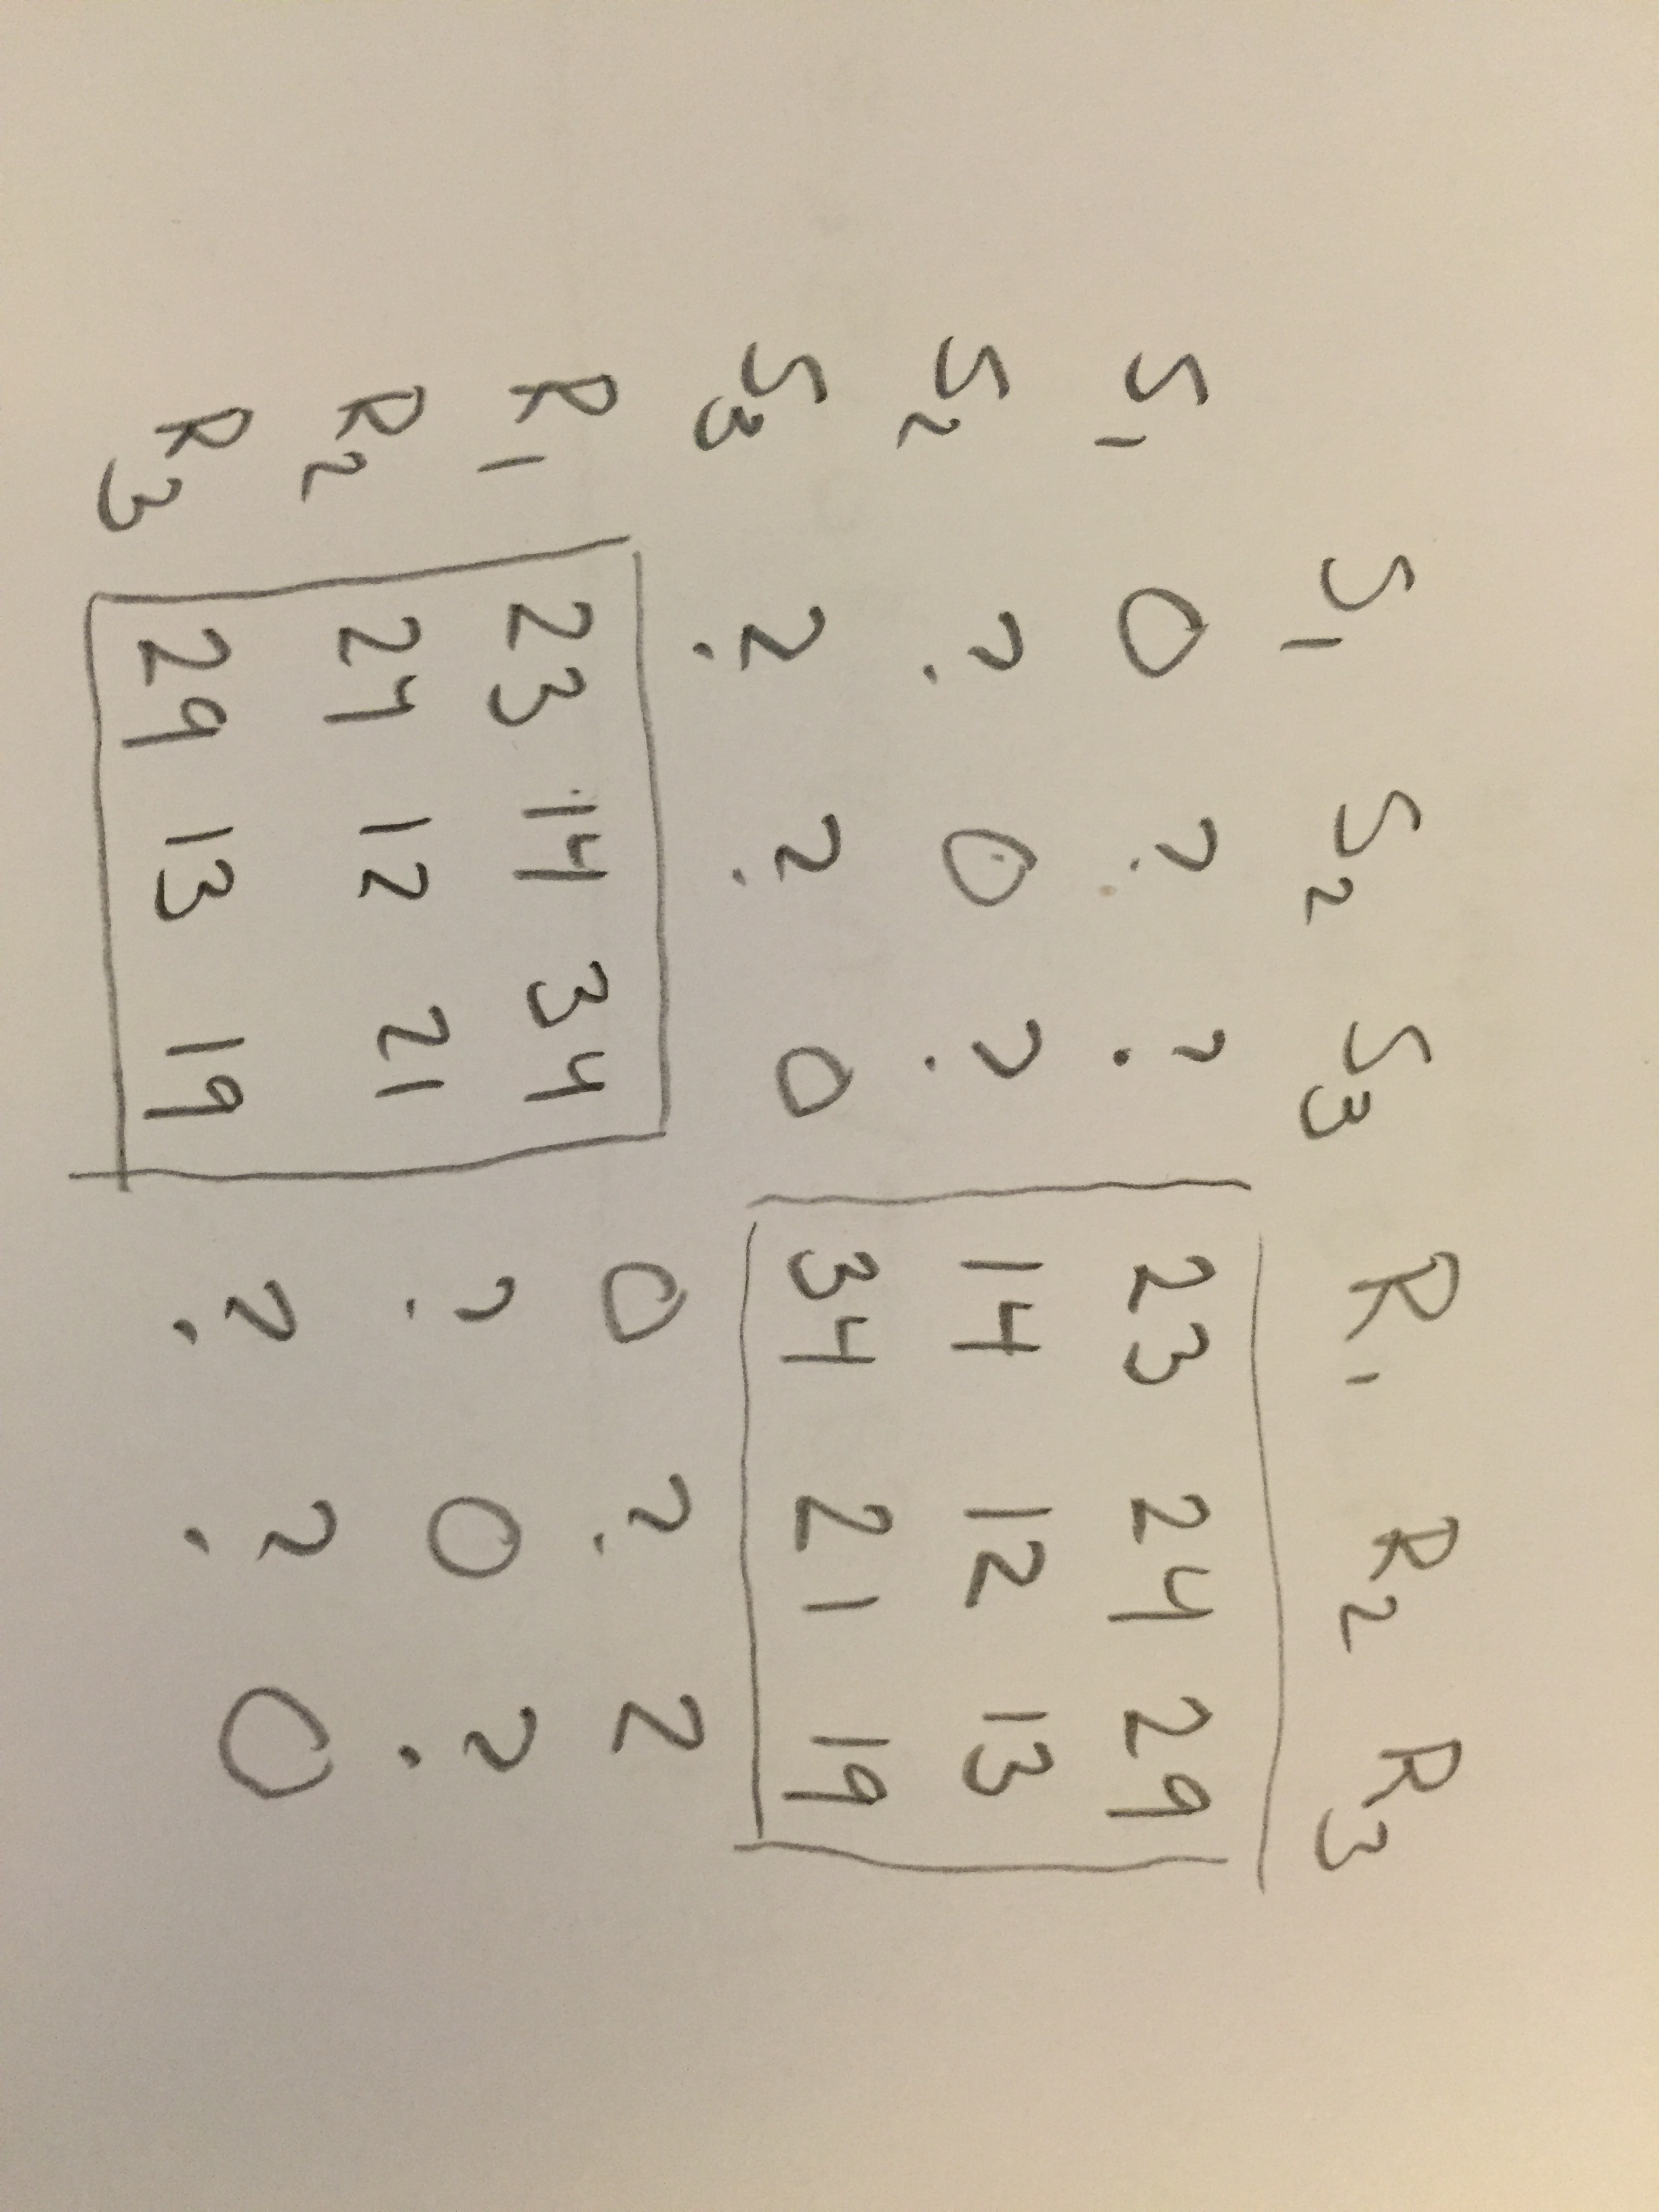 S1 S2 S3 R1 R2 R3
S1 0 ? ? 23 24 29
S2 ? 0 ? 14 12 13
S3 ? ? 0 34 21 19
R1 23 14 34 0 ? 2
R2 24 12 21 ? 0 ?
R3 29 13 19 ? ? 0